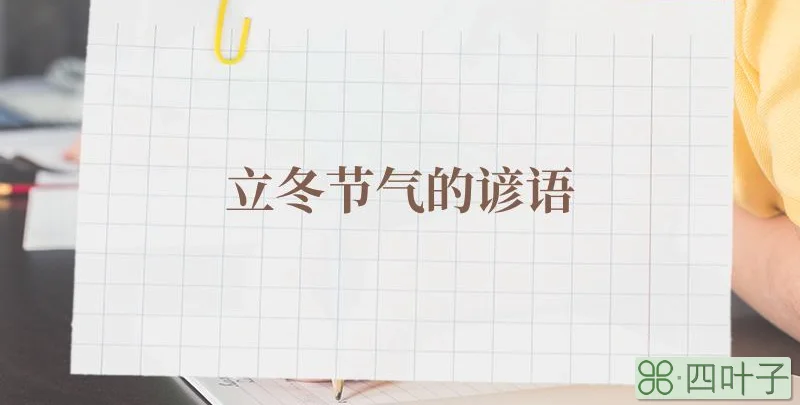 立冬节气的谚语
⌘·四叶子